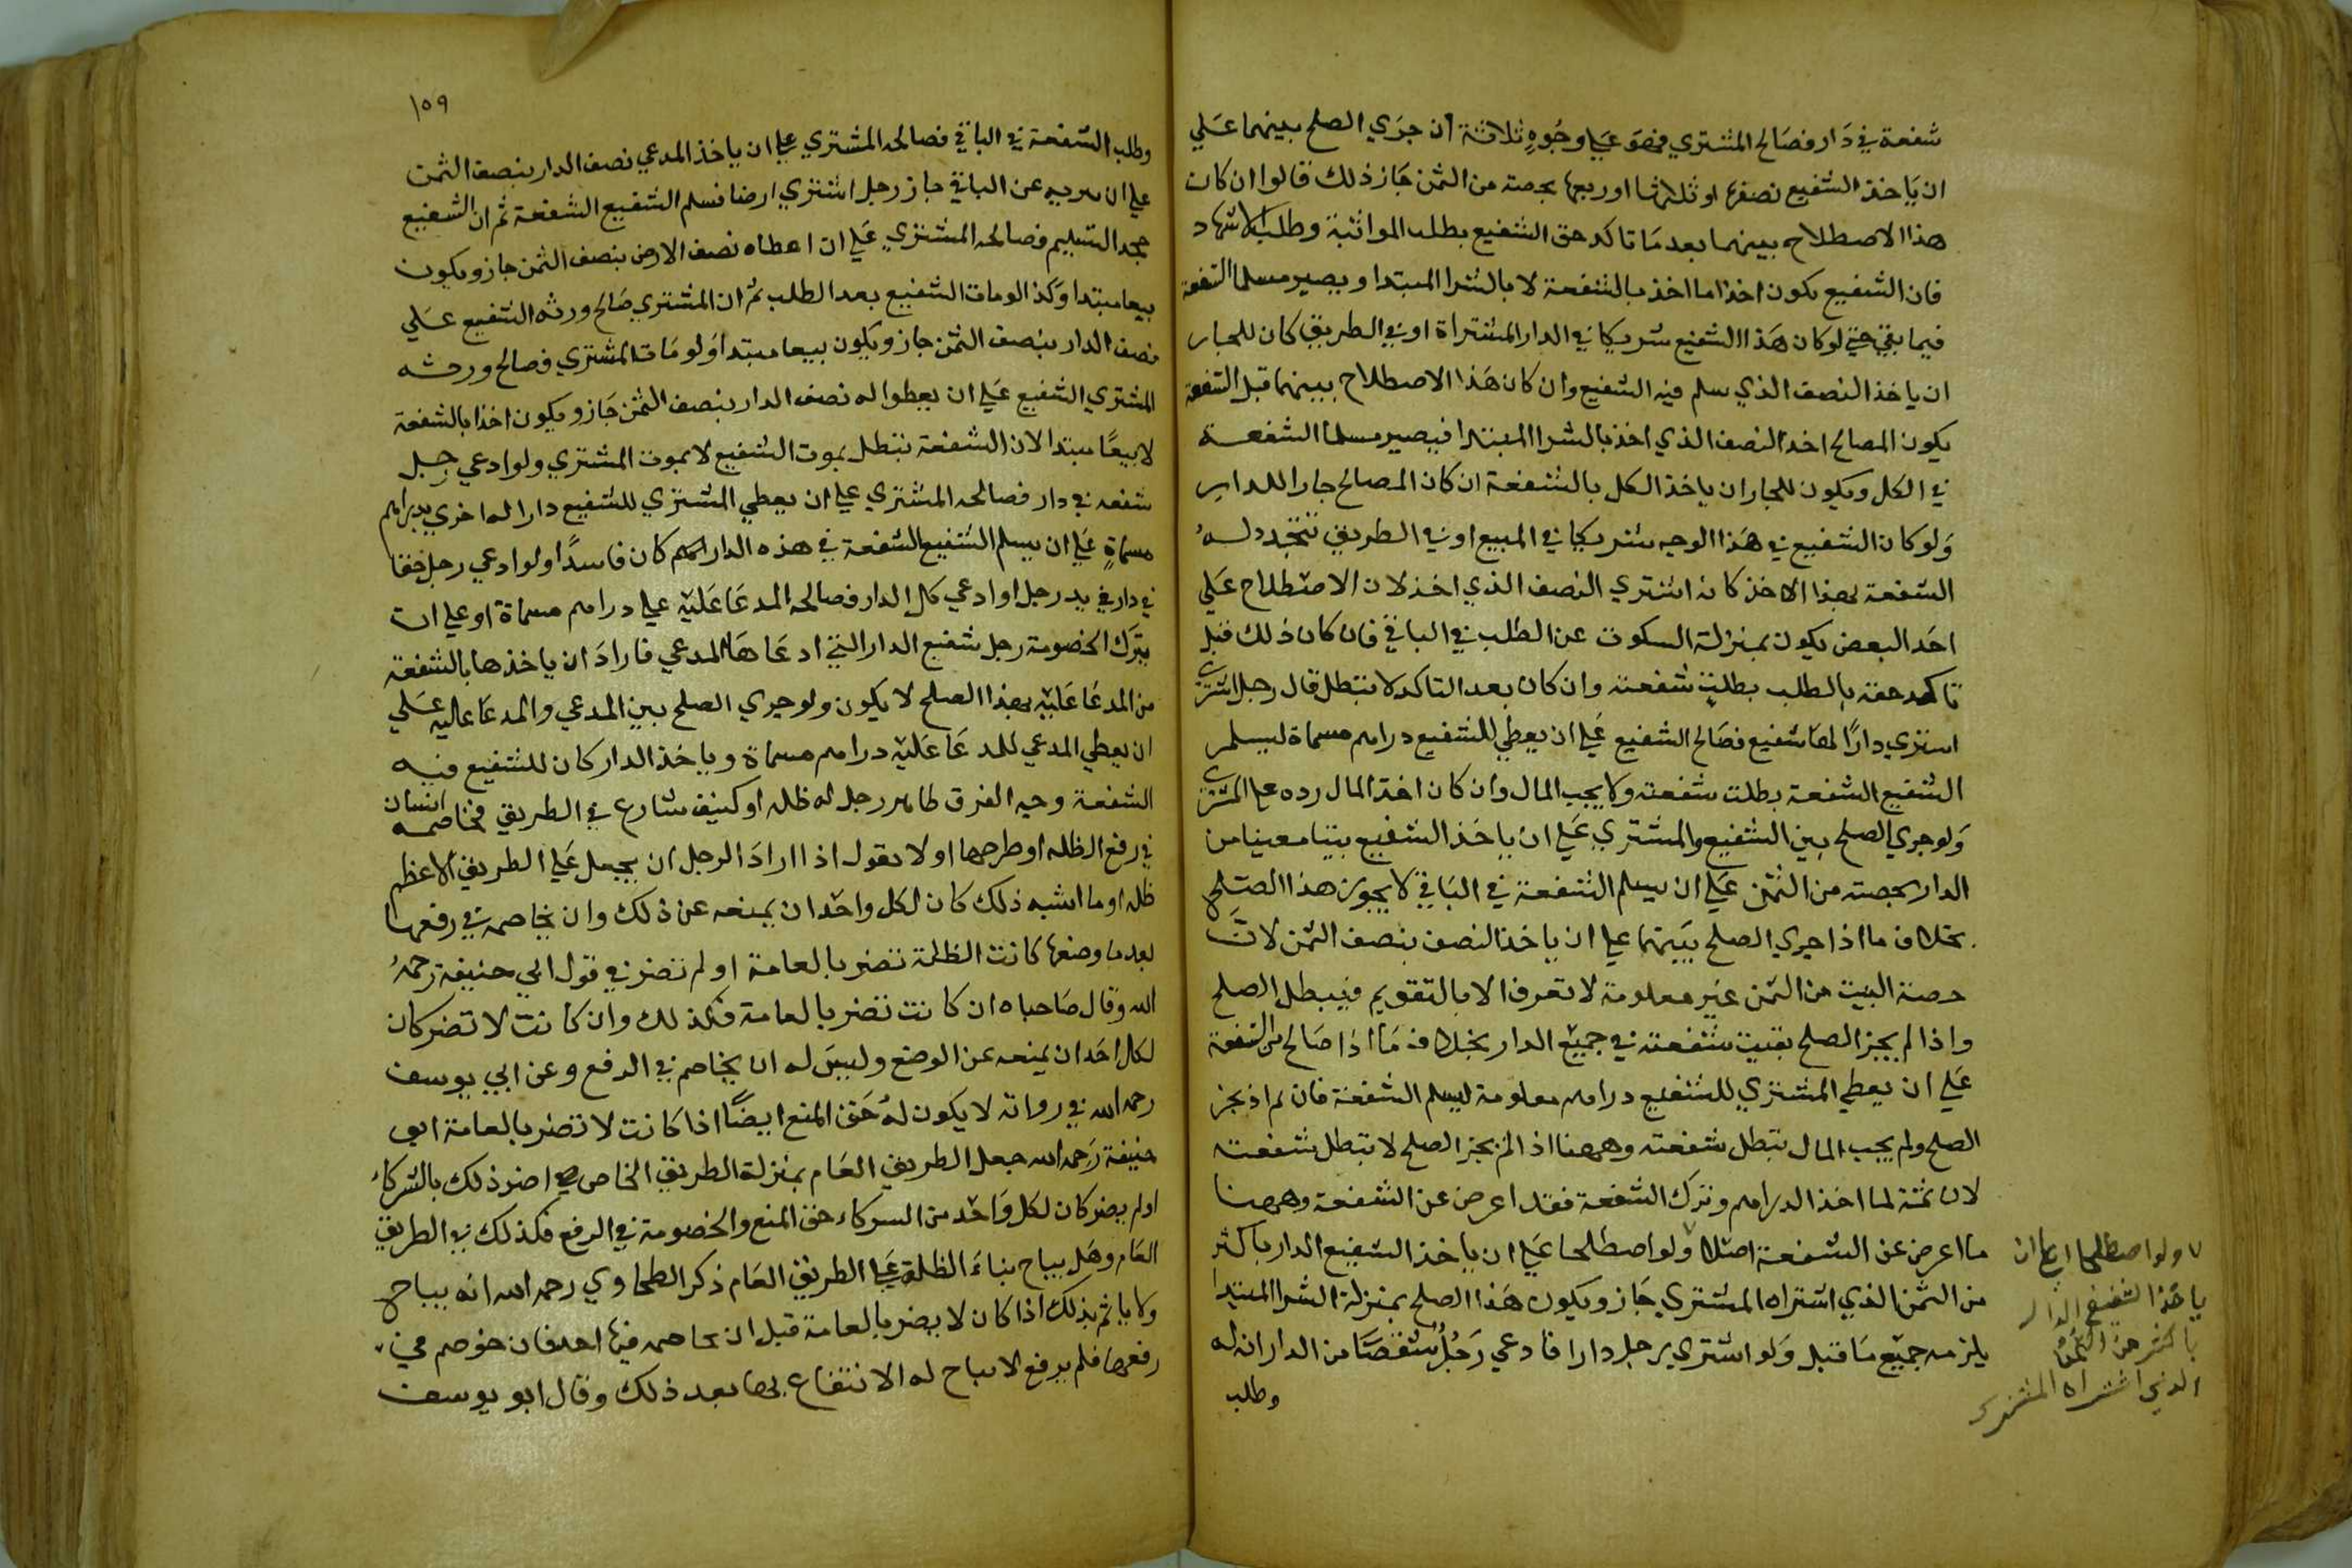 شفعة في دار فصالح المشتري فهو علي وجوه ثلاثة ان جري الصلح بينهما علي
ان ياخذ الشفيع نصفها او ثلثها او ربعها بحصته من الثمن جاز ذلك قالوا ان كان
هذا الاصطلاح بينهما بعد ما تاكد حق الشفيع بطلب المواثبة وطلب الاشهاد
فان الشفيع يكون اخذا ما اخذ بالشفعة لا بالشرا المبتدا ويصير مسلما الشفعة
فيما بقي حتي لو كان هذا الشفيع شريكا في الدار المشتراة او في الطريق كان للجار
ان ياخذ النصف الذي سلم فيه الشفيع وان كان هذا الاصطلاح بينهما قبل الشفعة
يكون المصالح اخد النصف الذي اخذ بالشرا المبتدا فيصير مسلما الشفعة
في الكل ويكون للجار ان ياخذ الكل بالشفعة ان كان المصالح جارا للدار
ولو كان الشفيع في هذا الوجه شريكا في المبيع او في الطريق تتجدد له
الشفعة بهذا الاخذ كانه اشتري النصف الذي اخذ لان الاصطلاح علي
احد البعض يكون بمنزلة السكوت عن الطلب في الباقي فان كان ذلك قبل
تاكد حقه بالطلب بطلت شفعته وان كان بعد التاكد لا تبطل قال رجل اشتري
اشتري دارا لها شفيع فصالح الشفيع علي ان يعطي للشفيع دراهم مسماة ليسلم
الشفيع الشفعة بطلت شفعته ولا يجب المال وان كان اخذ المال رده علي المشتري
ولو جري الصلح بين الشفيع والمشتري علي ان ياخذ الشفيع بيتا معينا من
الدار بحصته من الثمن علي ان يسلم الشفعة في الباقي لا يجوز هذا الصلح
بخلاف ما اذا جري الصلح بينهما علي ان ياخذ النصف بنصف الثمن لان
حصة البيت من الثمن غير معلومة لا تعرف الا بالتقويم فيبطل الصلح
واذا لم يجز الصلح بقيت شفعته في جميع الدار بخلاف ما اذا صالح من الشفعة
علي ان يعطي المشتري للشفيع دراهم معلومة ليسلم الشفعة فان لم يجز
الصلح ولم يجب المال تبطل شفعته وههنا اذا لم يجز الصلح لا تبطل شفعته
لان ثمة لما اخذ الدراهم وترك الشفعة فقد اعرض عن الشفعة وههنا
ما اعرض عن الشفعة اصلا ولو اصطلحا علي ان ياخذ الشفيع الدار باكثر
من الثمن الذي اشتراه المشتري جاز ويكون هذا الصلح بمنزلة الشرا المبتدا
يلزمه جميع ما قبل ولو اشتري رجل دارا فادعي رجل شقصا من الدار انه له
وطلب
ولو اصطلحا علي ان
ياخذ الشفيع الدار
باكثر من الثمن
الذي اشتراه المشتري
١٥٩
وطلب الشفعة في الباقي فصالحه المشتري علي ان ياخذ المدعي نصف الدار بنصف الثمن
علي ان عن الباقي جاز رجل اشتري ارضا فسلم الشفيع الشفعة ثم ان الشفيع
جحد التسليم فصالحه المشتري علي ان اعطاه نصف الارض بنصف الثمن جاز ويكون
بيعا مبتدا وكذا لو مات الشفيع بعد الطلب ثم ان المشتري صالح ورثه الشفيع علي
نصف الدار بنصف الثمن جاز ويكون بيعا مبتدا ولو مات المشتري فصالح ورثه
المشتري الشفيع علي ان يعطوا له نصف الدار بنصف الثمن جاز ويكون اخذا بالشفعة
لا بيعا مبتدا لان الشفعة تبطل بموت الشفيع لا بموت المشتري ولو ادعي رجل
شفعه في دار فصالحه المشتري علي ان يعطي المشتري للشفيع دارا له اخري بدراهم
مسماة علي ان يسلم الشفيع الشفعة في هذه الدار كان فاسدا ولو ادعي رجل حقا
في دار في يد رجل او ادعي كل الدار فصالحه المدعا عليه علي دراهم مسماة او علي ان
يترك الخصومة رجل شفيع الدار التي ادعاها المدعي فاراد ان ياخذها بالشفعة
من المدعا عليه بهذا الصلح لا يكون ولو جري الصلح بين المدعي والمدعا عليه علي
ان يعطي المدعي للمدعا عليه دراهم مسماة وياخذ الدار كان للشفيع فيه
الشفعة وجه الفرق ظاهر رجل له ظله او كنيف شارع في الطريق فخاصمه انسان
في رفع الظله او طرحها اولا يقول اذا اراد الرجل ان يجعل علي الطريق الاعظم
ظله او ما اشبه ذلك كان لكل واحد ان يمنعه عن ذلك وان يخاصمه في رفعها
بعد ما وضعها كانت الظلة تضر بالعامة او لم تضر في قول ابي حنيفة رحمه
الله وقال صاحباه ان كانت تضر بالعامة فكذلك وان كانت لا تضر كان
لكل احد ان يمنعه عن الوضع وليس له ان يخاصم في الرفع وعن ابي يوسف
رحمه الله في رواته لا يكون له حق المنع ايضا اذا كانت لا تضر بالعامة ابو
حنيفة رحمه الله جعل الطريق العام بمنزلة الطريق الخاص اضر ذلك بالشركاء
اولم يضر كان لكل واحد من الشركاء حق المنع والخصومة في الرفع فكذلك في الطريق
العام وهل يباح بناء الظلة علي الطريق العام ذكر الطحاوي رحمه الله انه يباح
ولا ياثم بذلك اذا كان لا يضر بالعامة قبل ان يخاصمه فيها احد فان خوصم في
رفعها فلم يرفع لا يباح له الانتفاع بها بعد ذلك وقال ابو يوسف